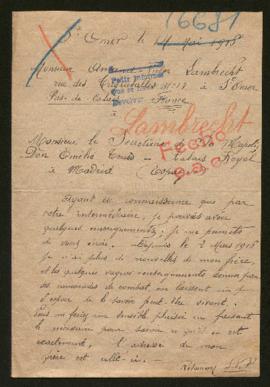 16681
St Omer le 14 Mai 1915
Monsieur Lambrecht
rue des N° 12 à St Omer
Pas-de-Calais France
Lambrecht
FECHO
Monsieur le Secrétaire de Sa Majesté
Don Emilio Palais Royal
à Madrid (Espagne)
Ayant eu connaissance que par
votre intermédiaire, je pouvais avoir
quelques renseignements, je me permets
de vous écrire. Depuis le 2 Mars 1915
je n'ai plus de nouvelles de mon frère
et les quelques vagues renseignements donnés par
ses camarades de combat me laissent un peu
d'espoir de le savoir peut être vivant.
Vous me feriez un sensible plaisir en faisant
le nécessaire pour savoir ce qu'il en est
exactement. L'adresse de mon
frère est celle-ci.